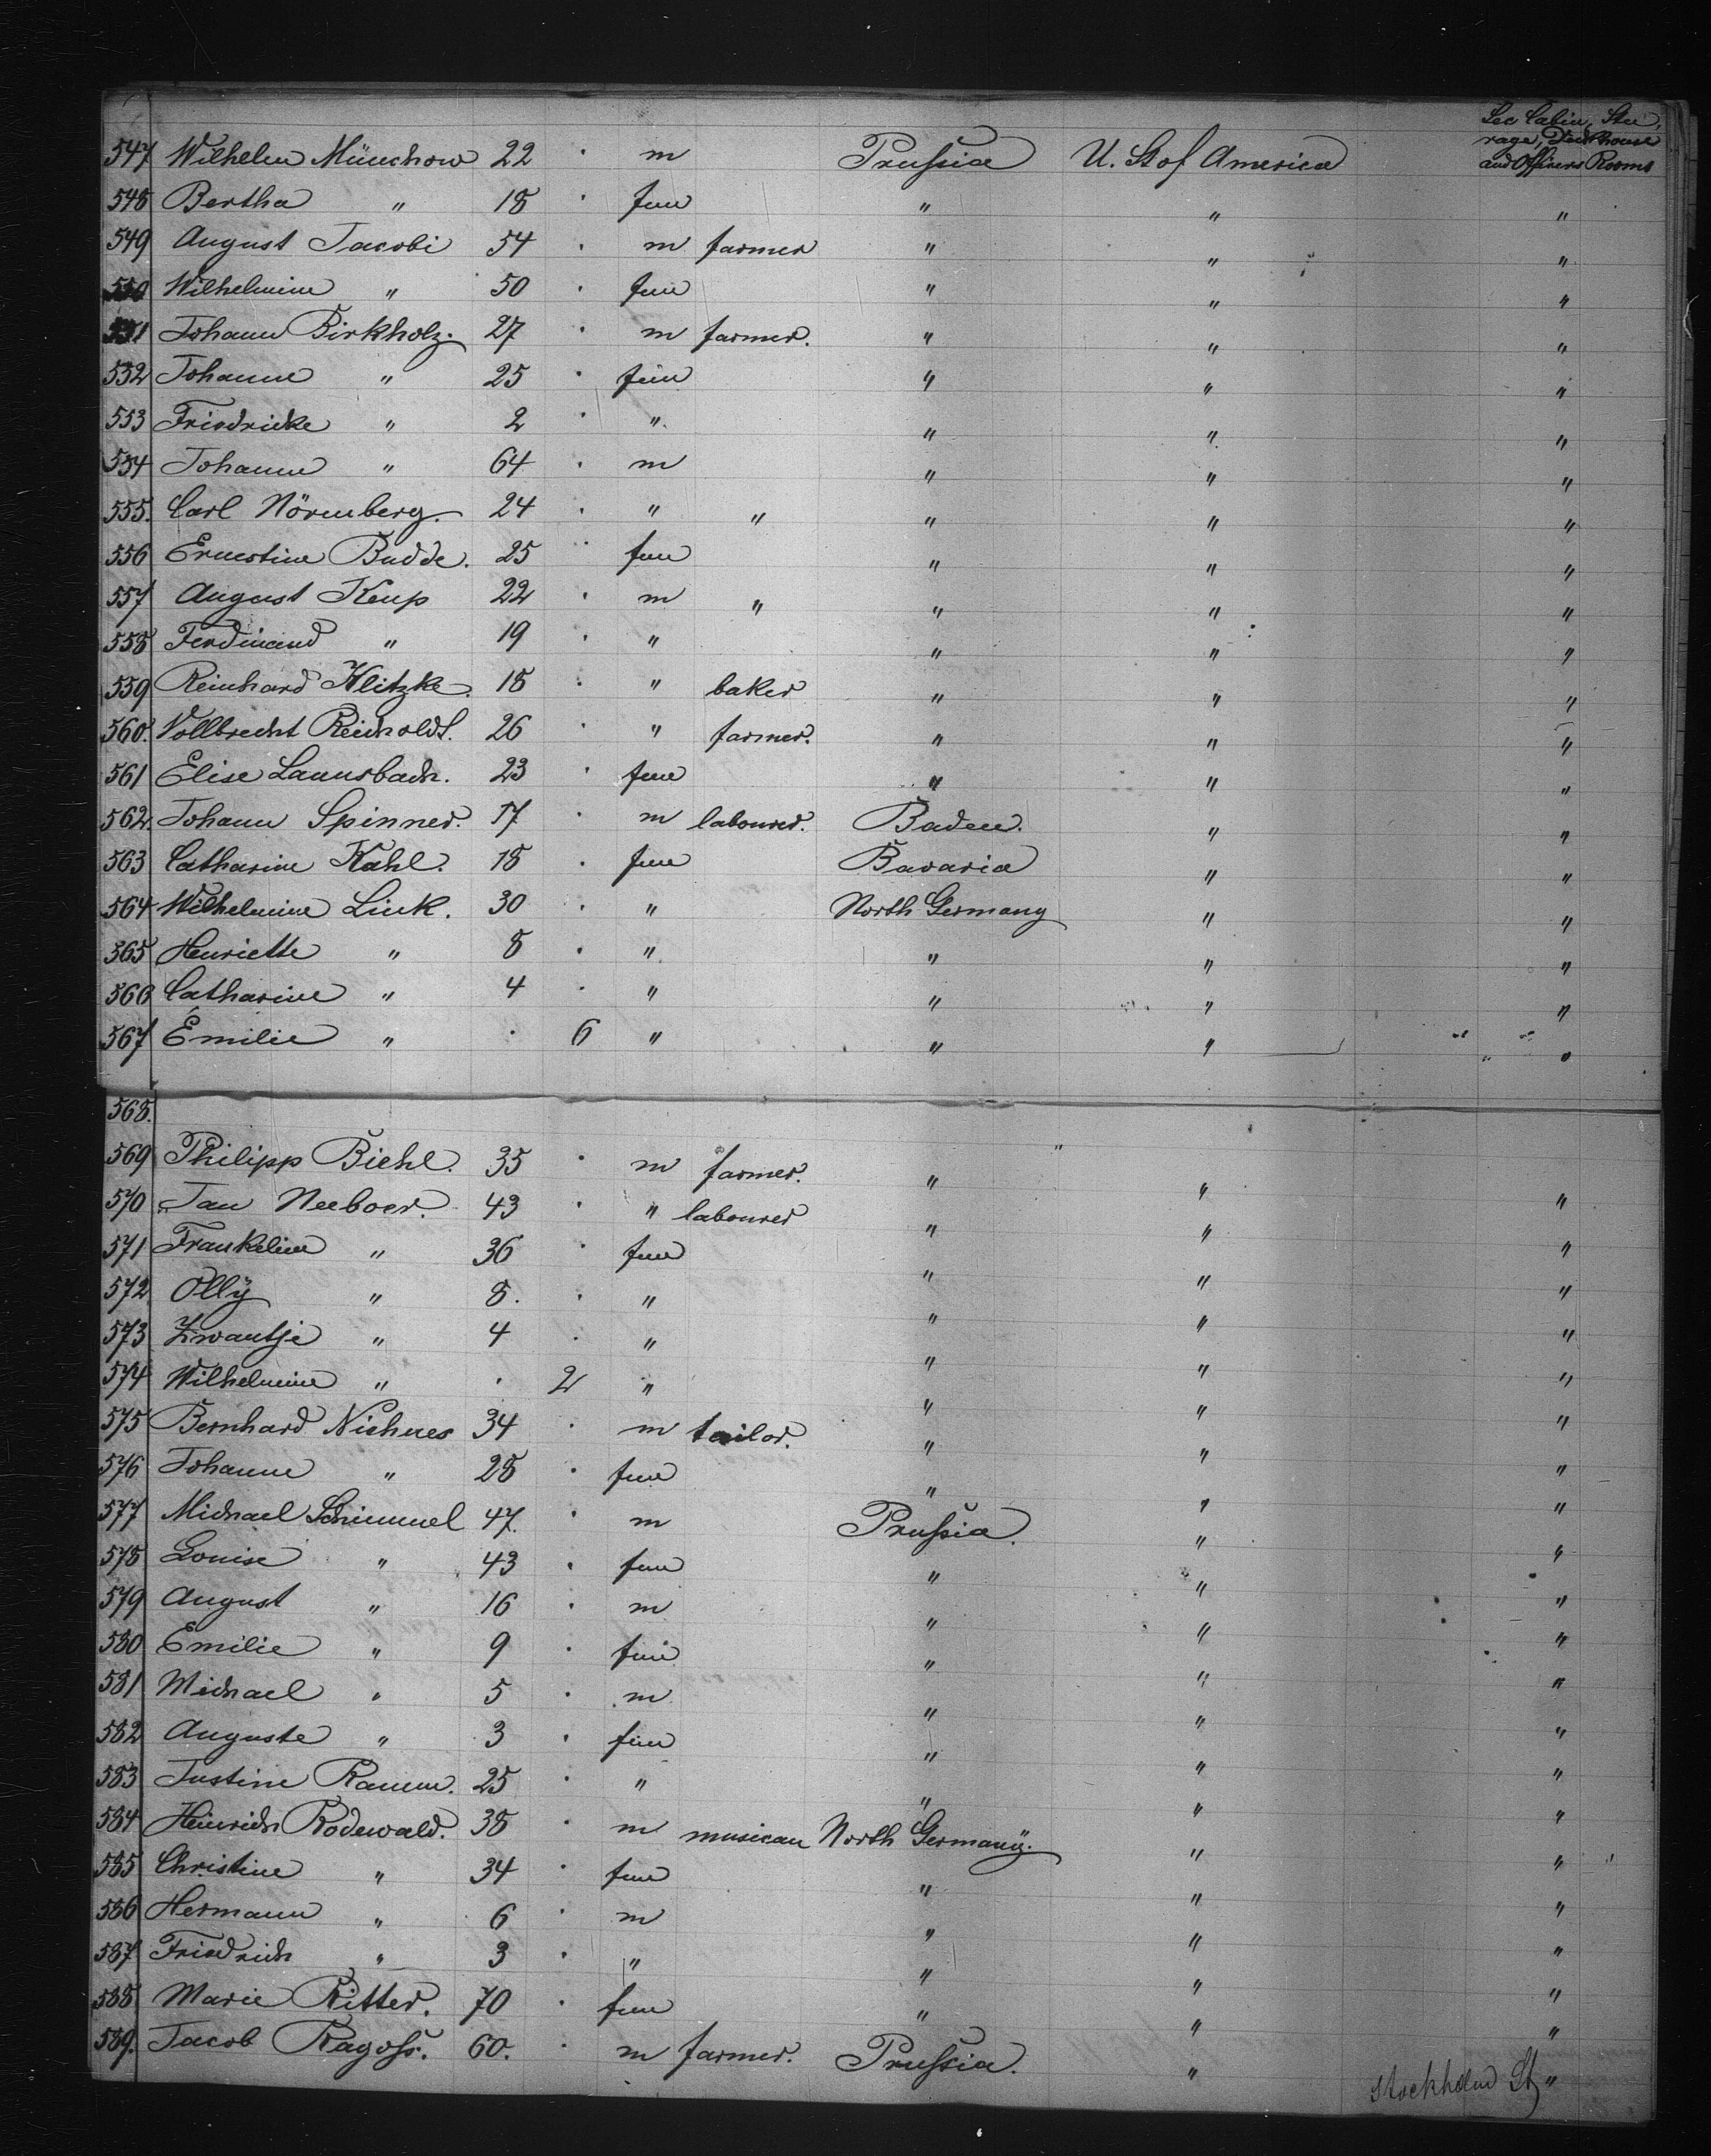 Sec Cabin, Stee,
rage, Deckhouse
and Officers Rooms
547 Wilhelm Münchow 22 · m Prussia U. St of America
548 Bertha " 18 · fem " " "
549 August Jacobi 54 · m farmer " " "
550 Wilhelmine " 50 · fem " " "
551 Johann Birkholz. 27 · m farmer. " " "
552 Johanne " 25 · fem " " "
553 Friedricke " 2 · " " " "
554 Johann " 64 · m " " "
555. Carl Nörenberg. 24 · " " " " "
556 Ernestine Budde. 25 · fem " " "
557 August Keup 22 · m " " " "
558 Ferdinand " 19 · " " " "
559 Reinhard Klitzke. 18 · " baker " " "
560. Vollbrecht Reichold. 26 · " farmer. " " "
561 Elise Launsbach. 23 · fem " " "
562. Johann Spinner. 17 · m labourer. Baden. " "
563 Catharine Kahl. 18 · fem Bavaria " "
564 Wilhelmine Link. 30 · " North Germany " "
565 Henriette " 8 · " " " "
566 Catharine " 4 · " " " "
567 Emilie " · 6 " " " "
568.
569 Philipp Biehl. 35 · m farmer. " " "
570 Jan Neeboer. 43 · " labourer " " "
571 Frankeline " 36 · fem " " "
572 Olly " 8. · " " " "
573 Zwantje " 4 · " " " "
574 Wilhelmine " · 2 " " " "
575 Bernhard Niehues 34 · m tailor. " " "
576 Johanne " 28 · fem " " "
577 Michael Schimmel 47. · m Prussia. " "
578 Louise " 43 · fem " " "
579 August " 16 · m " " "
580 Emilie " 9 · fem " " "
581 Michael " 5 · m " " "
582 Auguste " 3 · fem " " "
583 Justine Ramm. 25 · " " " "
584 Heinrich Rodewald. 38 · m musican North Germany. " "
585 Christine " 34 · fem " " "
586 Hermann " 6 · m " " "
587 Friedrich " 3 · " " " "
588. Marie Ritter. 70 · fem " " "
589. Jacob Ragoss. 60. · m farmer. Prussia. " "
Stockholm St